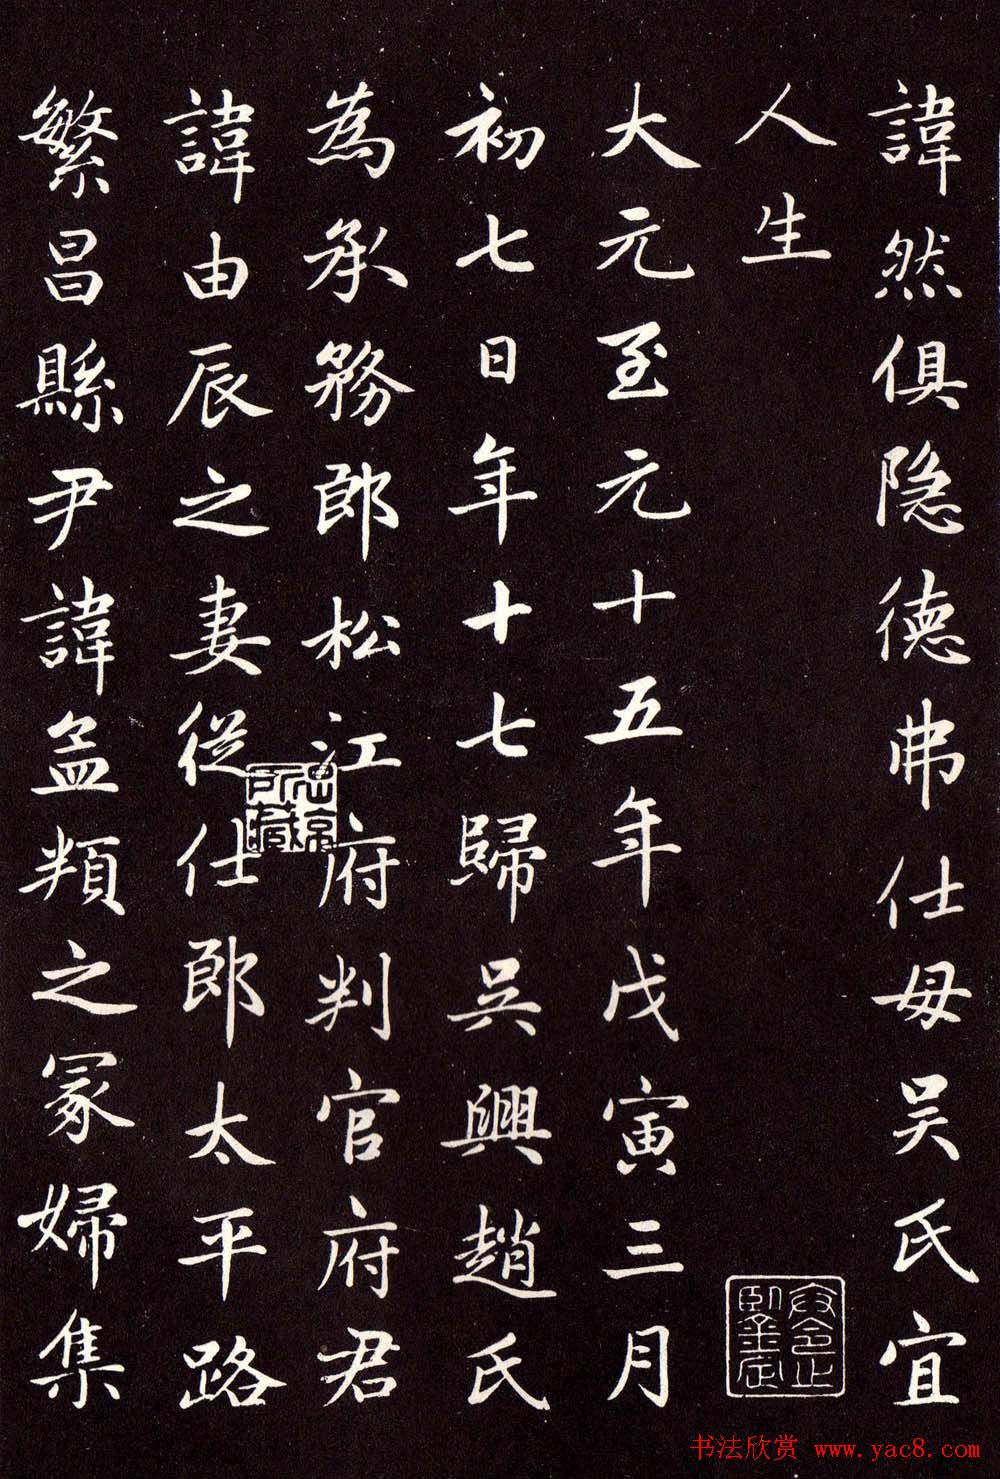 諱然俱隐德弗仕母吴氏宜
人生
大元至元十五年戊寅三月
初七日年十七歸吳興趙氏
為承務郎松江府判官府君
諱由辰之妻從仕郎太平路
繁昌縣尹諱孟頖之冢婦集
所藏
书法欣赏 www.yac8.com